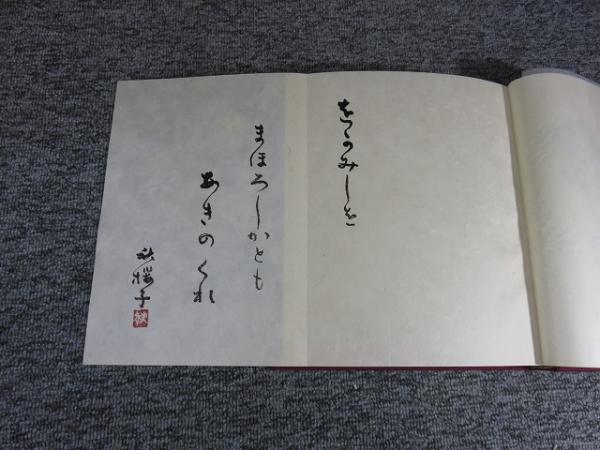 みしを
まほろしかとも
あきのくれ
秋櫻子